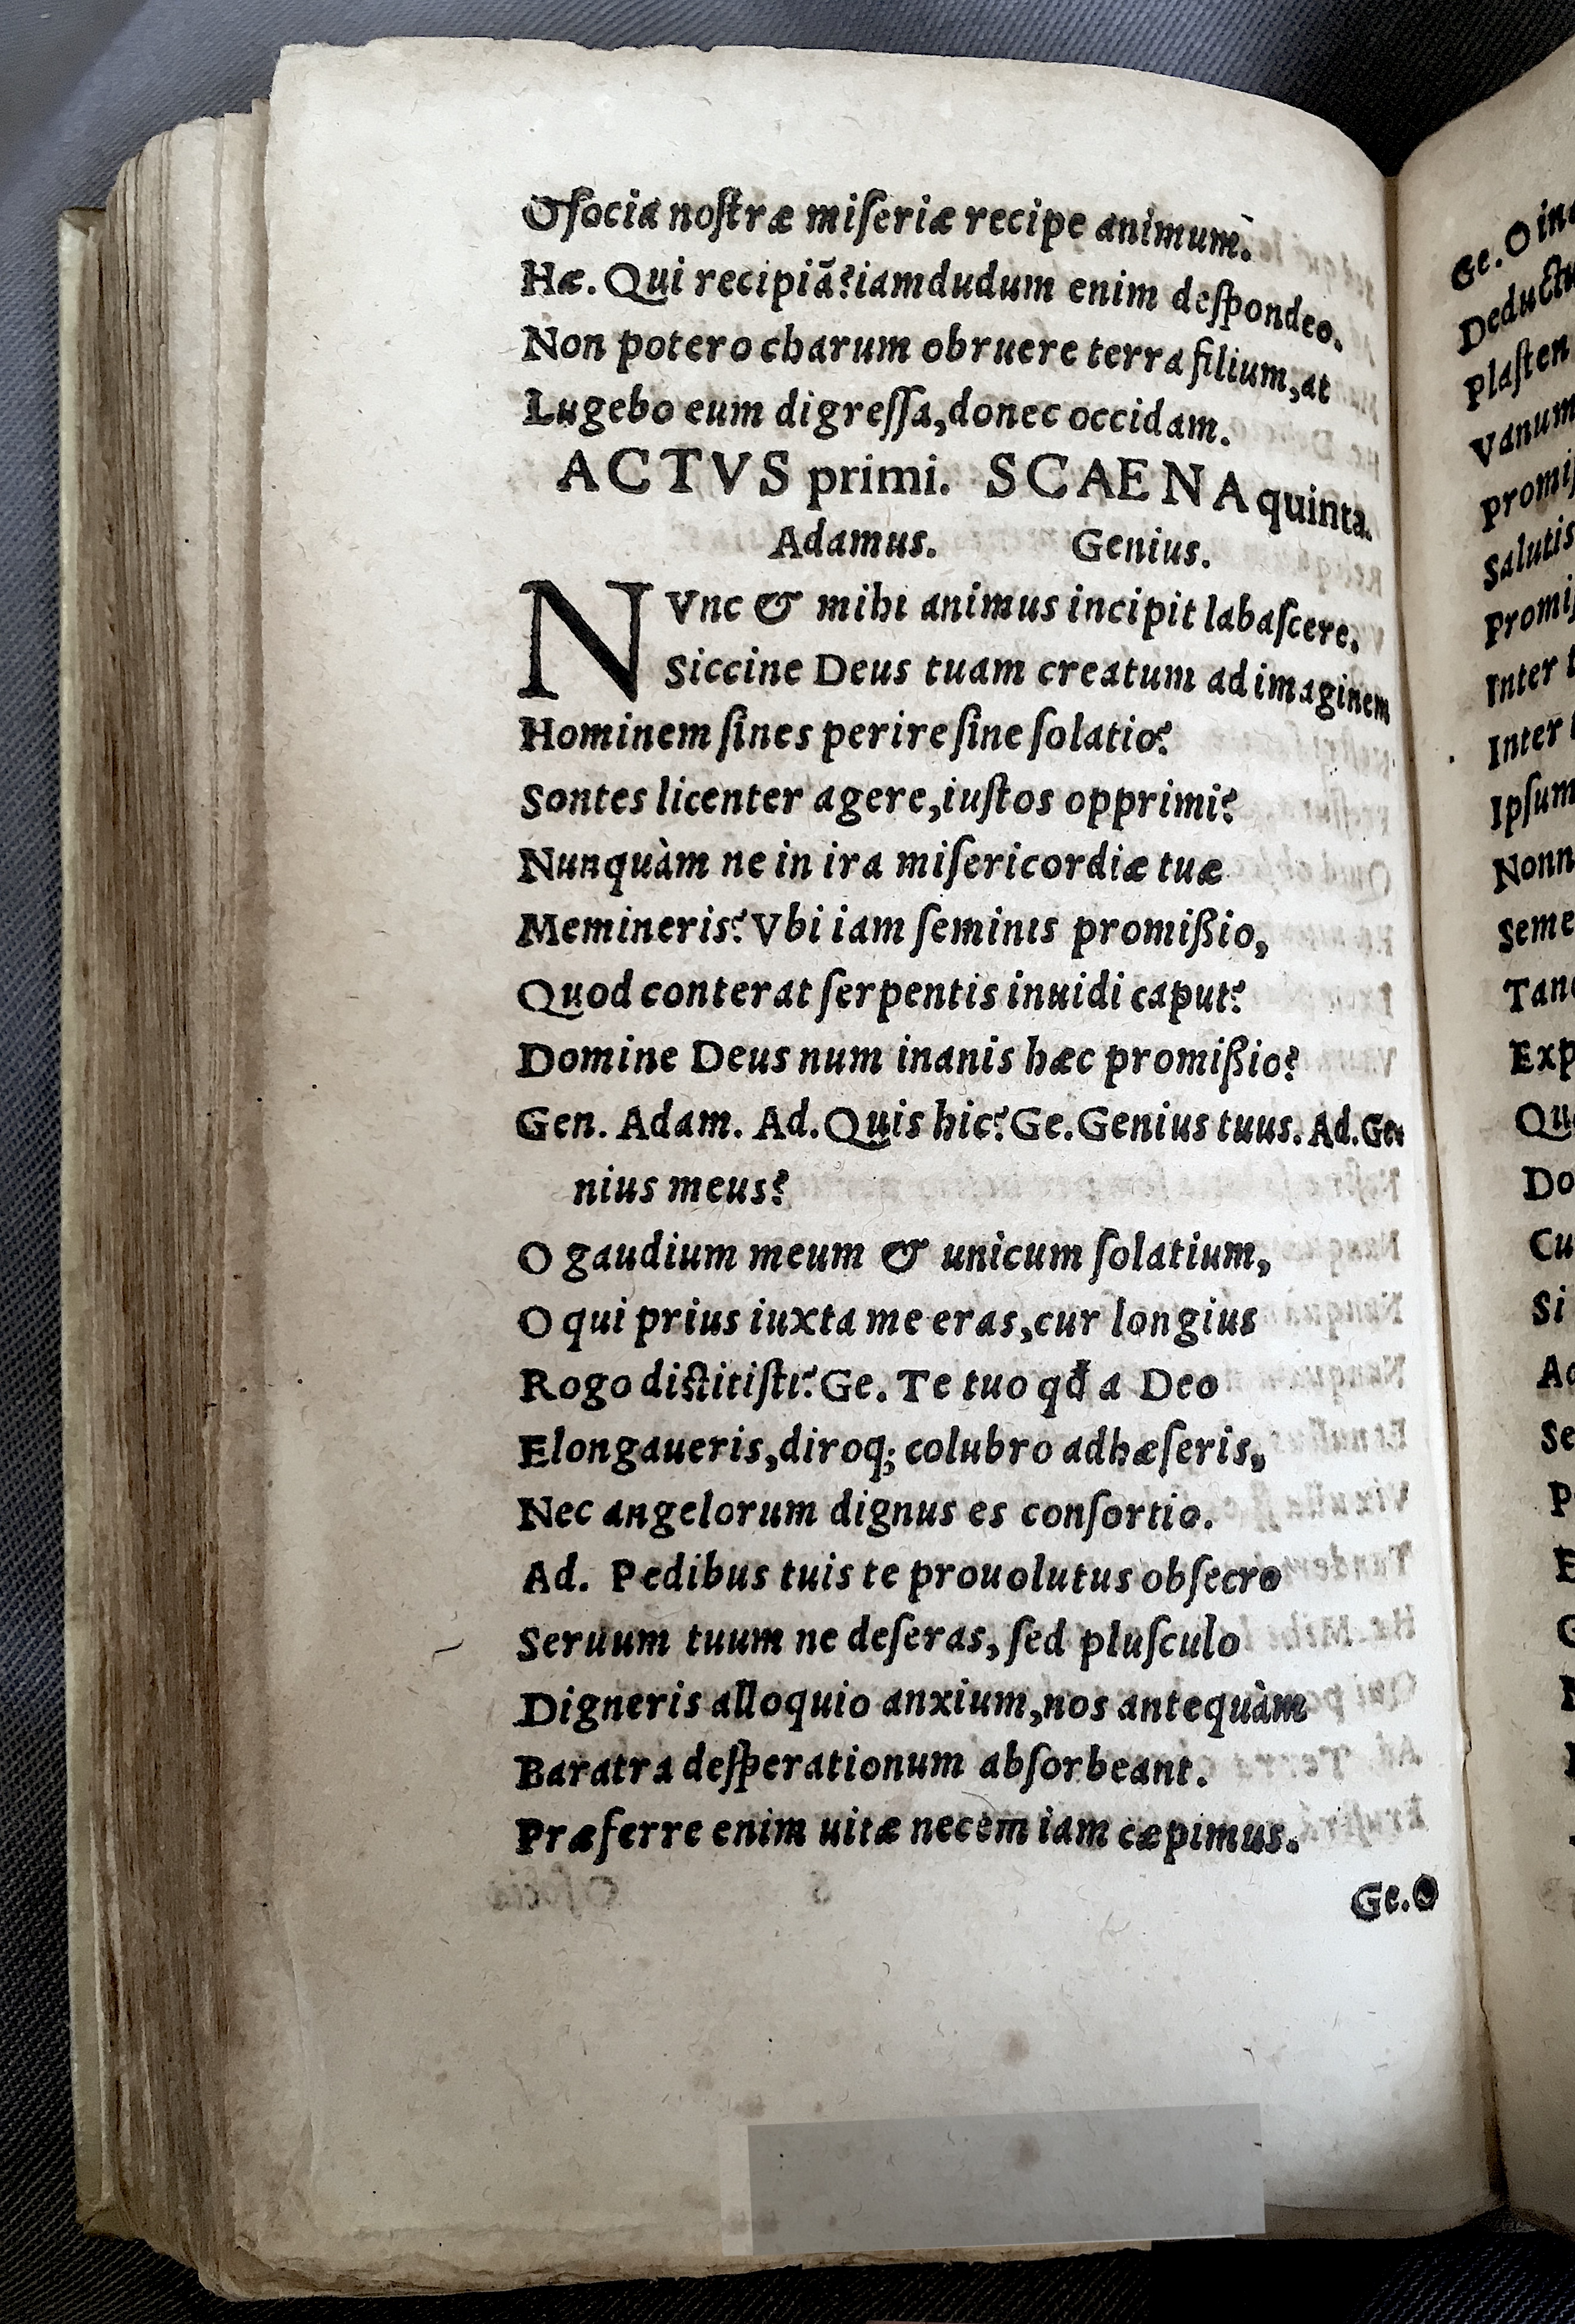 O ſocia noſtræ miſeriæ recipe animum.
Hæ. Qui recipiã? iamdudum enim deſpondeo.
Non potero charum obruere terra filium, at
Lugebo eum digreſſa, donec occidam.
ACTVS primi. SCAENA quinta.
Adamus. Genius.
NVnc & mihi animus incipit labaſcere.
Siccine Deus tuam creatum ad imaginem
Hominem ſines perire ſine ſolatio?
Sontes licenter agere, iuſtos opprimi?
Nunquàm ne in ira miſericordiæ tuæ
Memineris? Vbi iam ſeminis promißio,
Quod conterat ſerpentis inuidi caput?
Domine Deus num inanis hæc promißio?
Gen. Adam. Ad. Quis hic? Ge. Genius tuus. Ad. Ge-
nius meus?
O gaudium meum & unicum ſolatium,
O qui prius iuxta me eras, cur longius
Rogo diſtitiſti? Ge. Te tuo qđ a Deo
Elongaueris, diroq; colubro adhæſeris,
Nec angelorum dignus es conſortio.
Ad. Pedibus tuis te prouolutus obſecro
Seruum tuum ne deſeras, ſed pluſculo
Digneris alloquio anxium, nos antequàm
Baratra deſperationum abſorbeant.
Præferre enim uitæ necem iam cæpimus.
Ge. O
Ge. O
Plaſten
Vanum
Salutis
Inter
Inter
Ipſum
Si